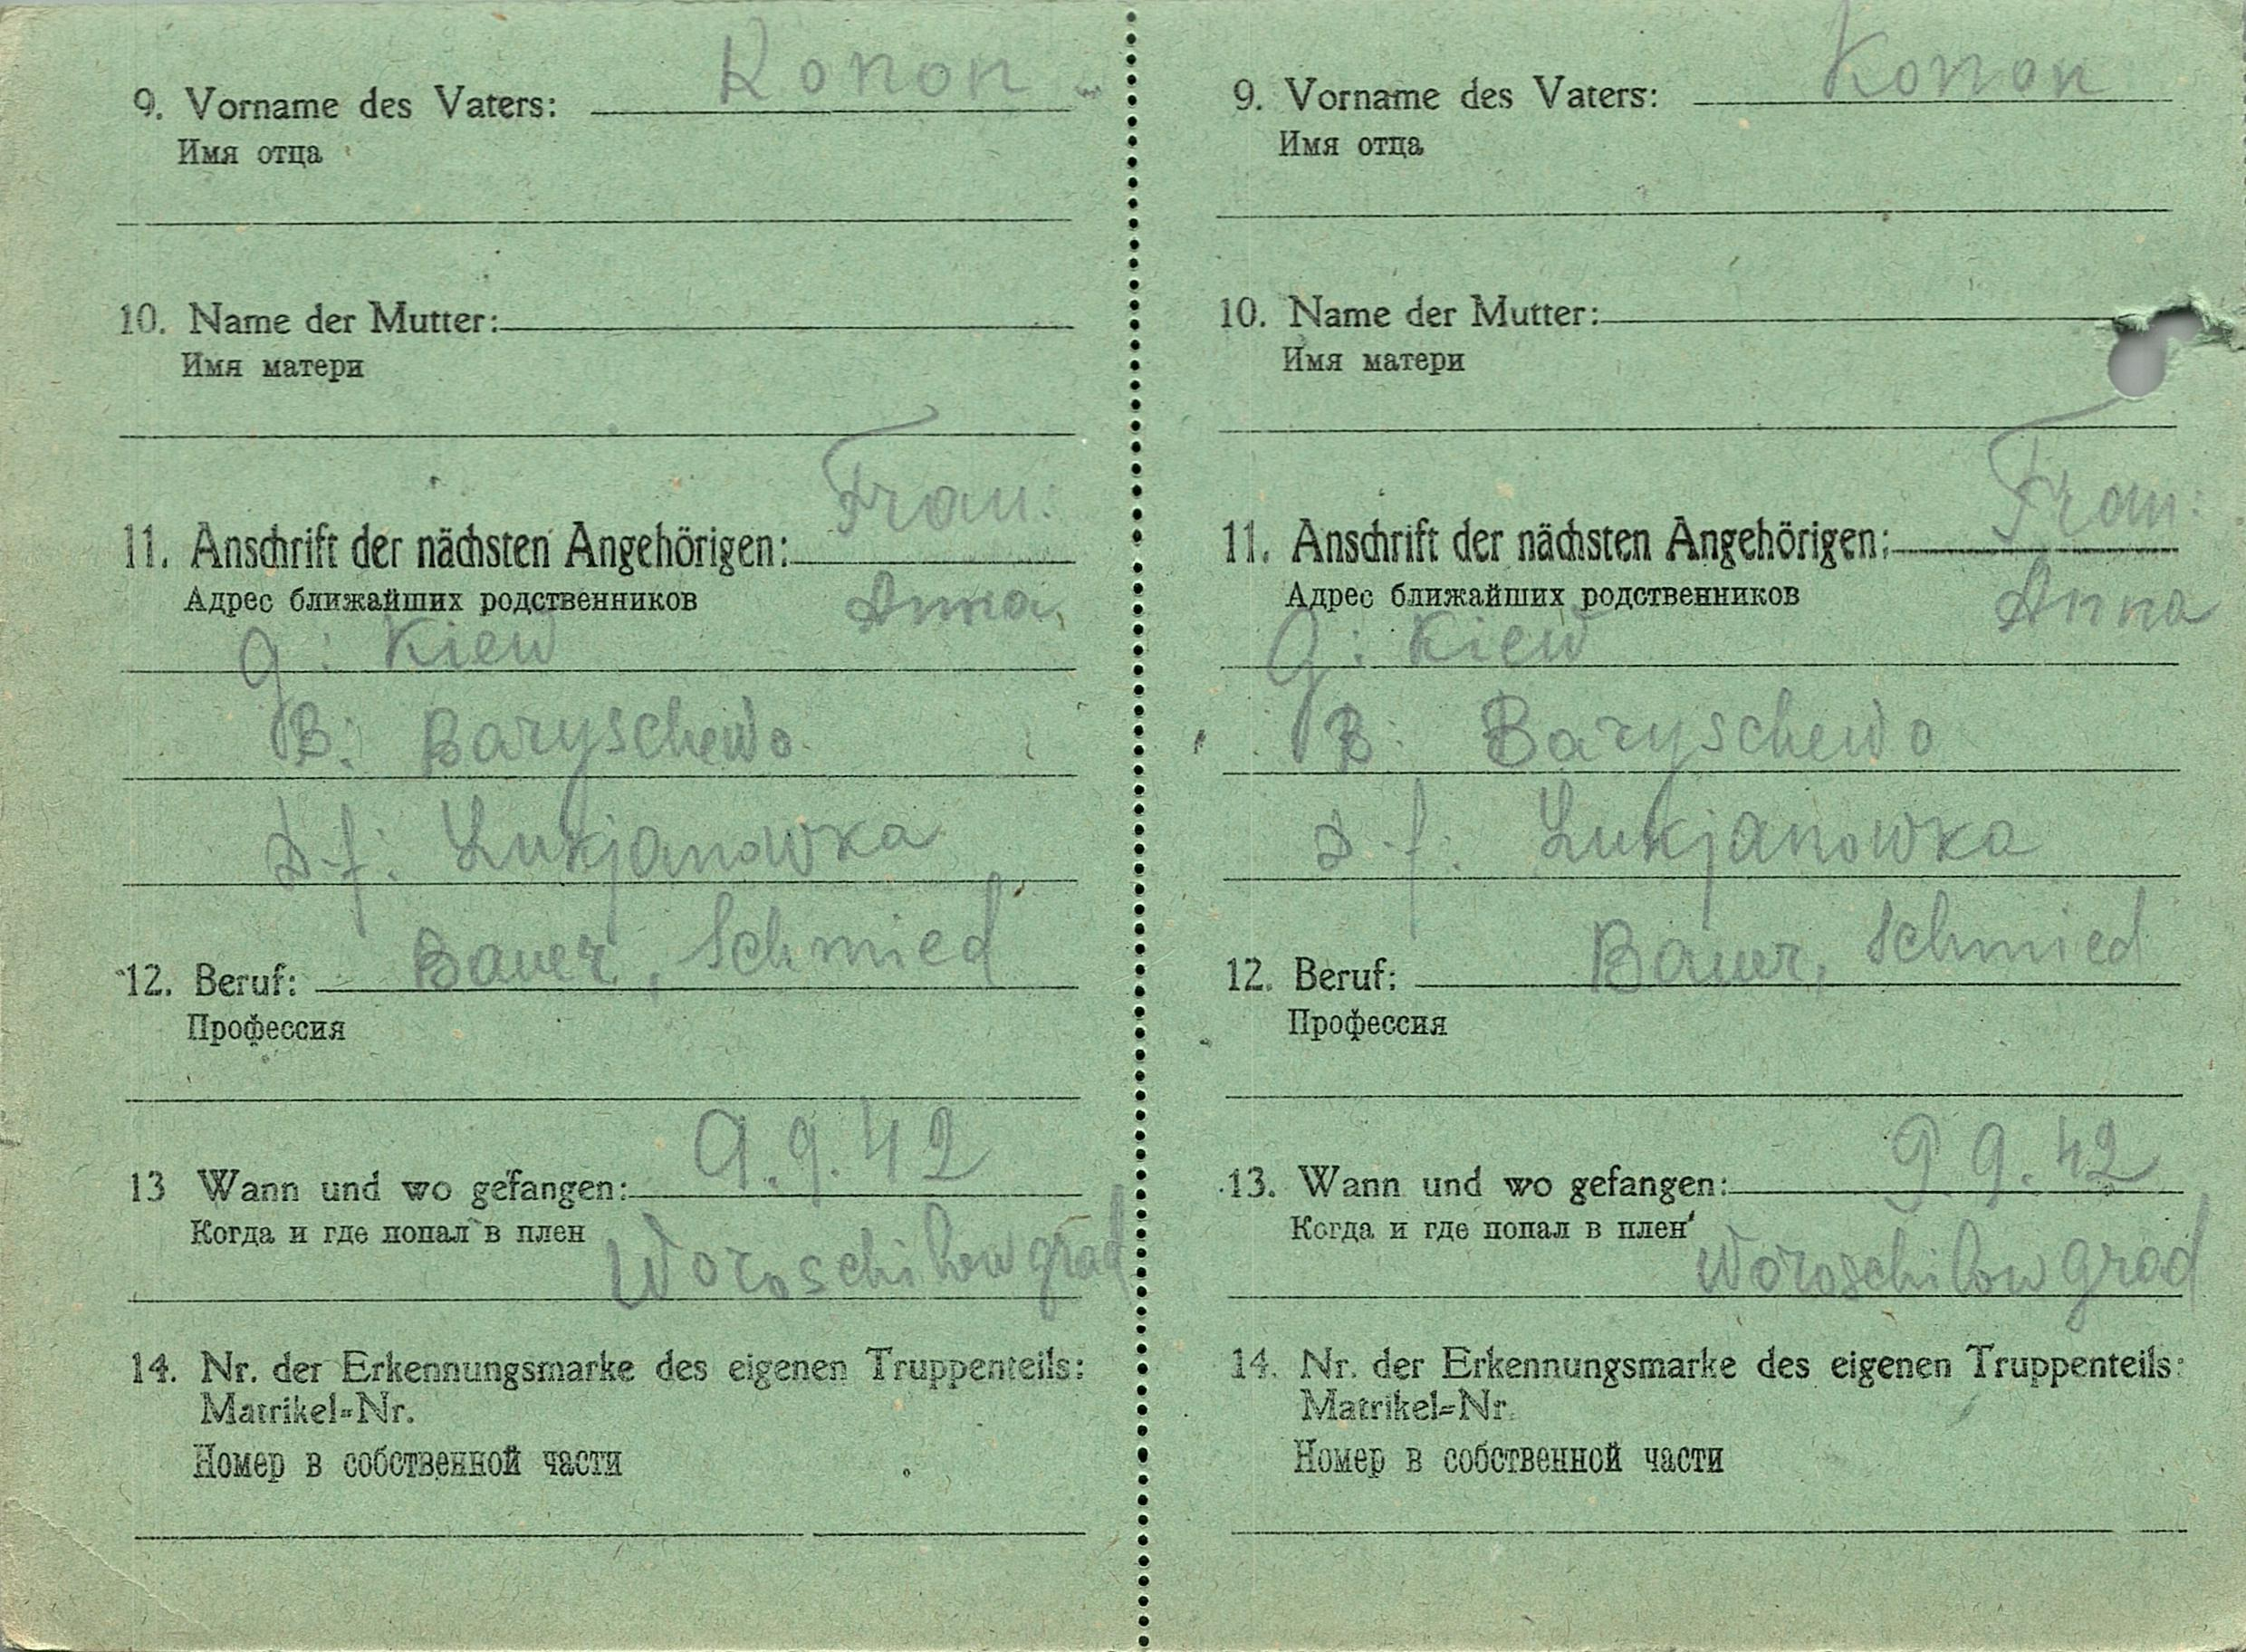 9. Vorname des Vaters: Konon
Имя отца
10. Name der Mutter:
Имя матери
Frau:
11. Anschrift der nächsten Angehörigen:
Адрес ближайших родственников Anna
G: Kiew
B: Baryschewo
D-f: Lukjanowka
12. Beruf: Bauer, Schmied
Профессия
13 Wann und wo gefangen: 9.9.42
Когда и где попал в плен
Woroschilowgrad
14. Nr. der Erkennungsmarke des eigenen Truppenteils:
Matrikel=Nr.
Номер в собственной части
9. Vorname des Vaters: Konon
Имя отца
10. Name der Mutter:
Имя матери
Frau:
11. Anschrift der nächsten Angehörigen:
Адрес ближайших родственников Anna
G: Kiew
B: Baryschewo
D-f: Lukjanowka
12. Beruf: Bauer, Schmied
Профессия
13. Wann und wo gefangen: 9 9.42
Когда и где попал в плен
Woroschilowgrad
14. Nr. der Erkennungsmarke des eigenen Truppenteils:
Matrikel=Nr.
Номер в собственной части